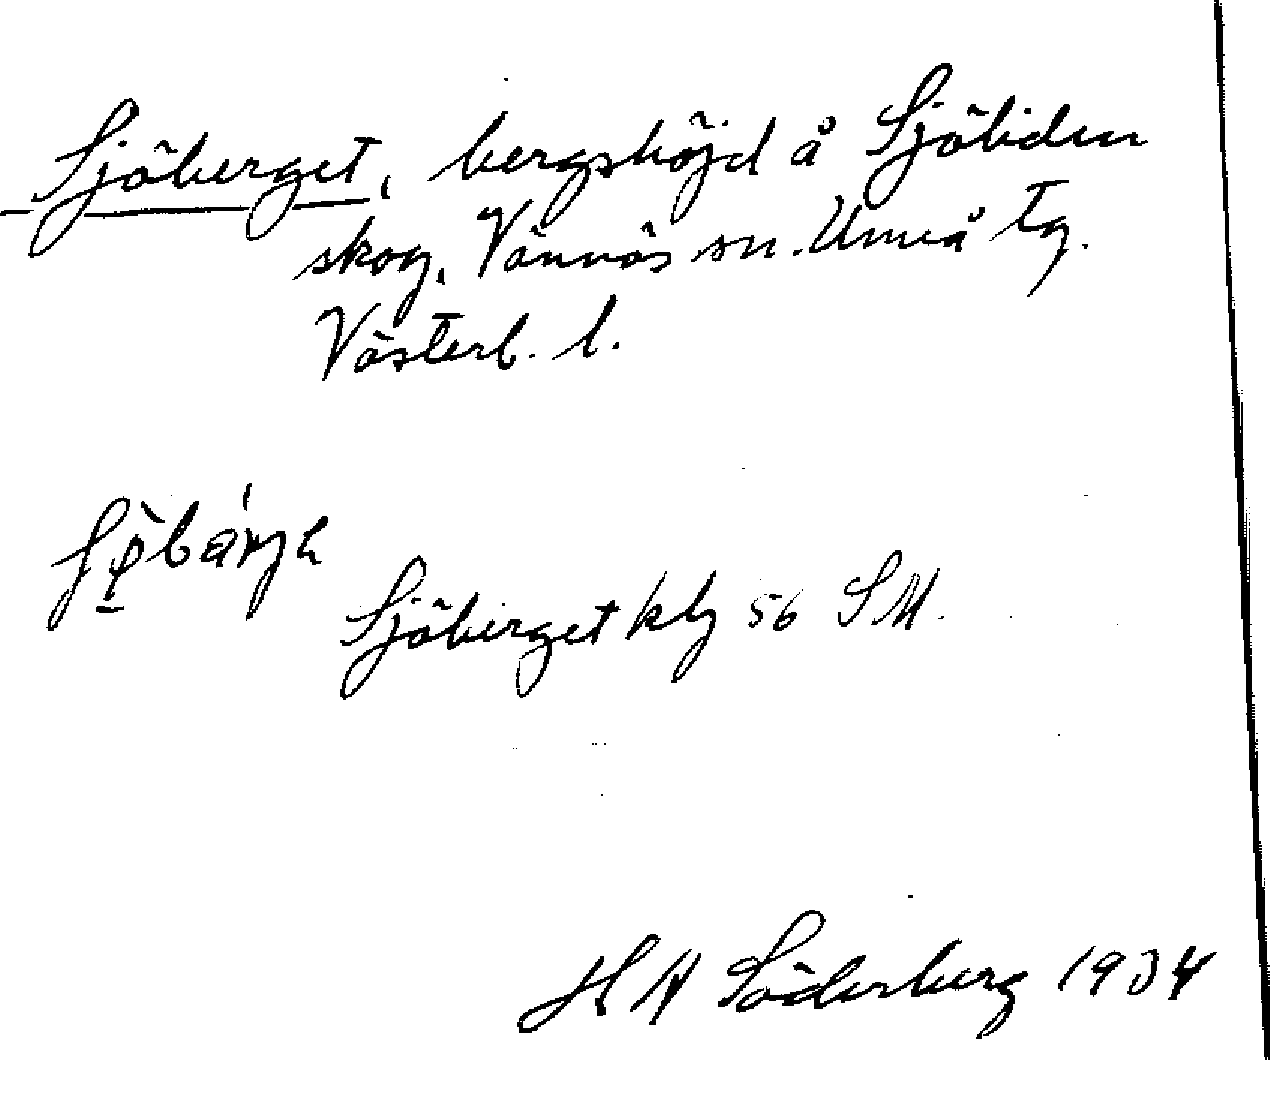 Sjöberget, bergshöjd å Sjöliden
skog, Vännäs sn. Umeå tg.
Västerb. l.
Sjöberget klg 56 SM.
H A Söderberg 1934